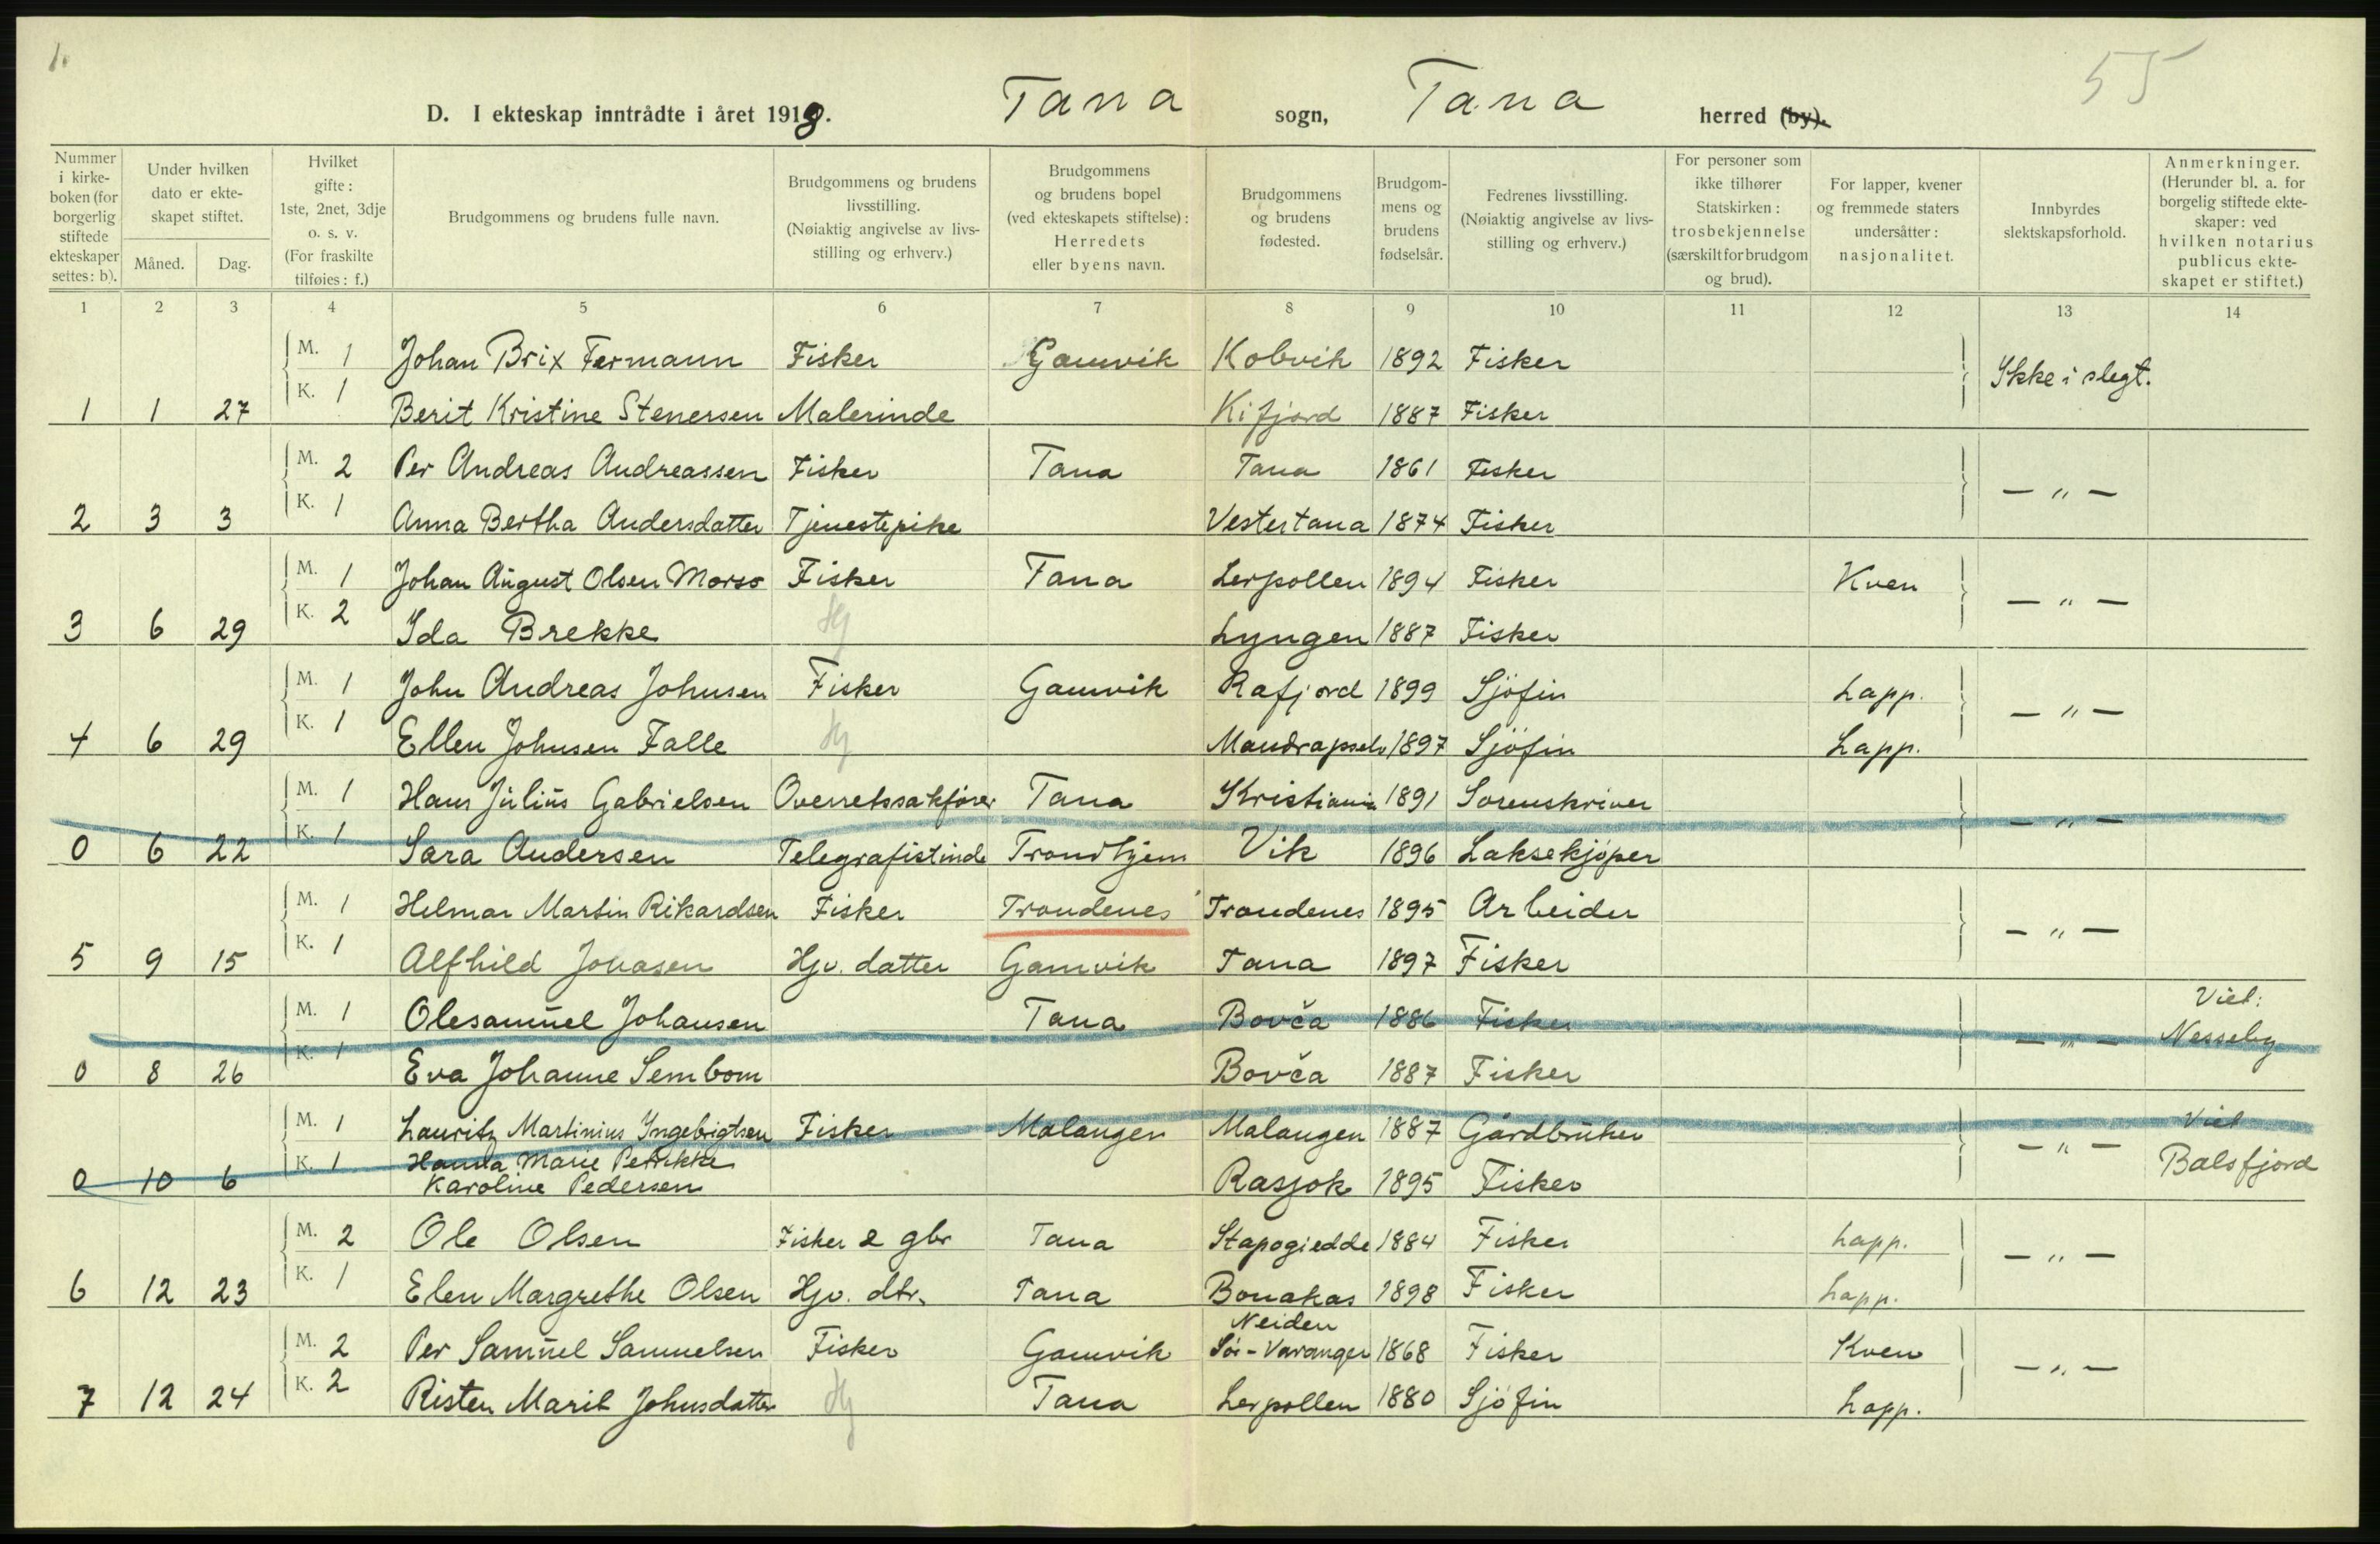 1.
55
D. I ekteskap inntrådte i året 1918. Tana sogn, Tana herred (by).
Nummer i kirke-boken (for borgerlig stiftede ekteskaper settes: b).
Under hvilken dato er ekte-skapet stiftet.
Måned. Dag.
Hvilket gifte: 1ste, 2net, 3dje o. s. v. (For fraskilte tilføies: f.)
Brudgommens og brudens fulle navn.
Brudgommens og brudens livsstilling. (Nøiaktig angivelse av livs-stilling og erhverv.)
Brudgommens og brudens bopel (ved ekteskapets stiftelse): Herredets eller byens navn.
Brudgommens og brudens fødested.
Brudgom-mens og brudens fødselsår.
Fedrenes livsstilling. (Nøiaktig angivelse av livs-stilling og erhverv.)
For personer som ikke tilhører Statskirken: trosbekjennelse (særskilt for brudgom og brud).
For lapper, kvener og fremmede staters undersåtter: nasjonalitet.
Innbyrdes slektskapsforhold.
Anmerkninger. (Herunder bl. a. for borgelig stiftede ekte-skaper: ved hvilken notarius publicus ekte-skapet er stiftet.)
1 2 3 4 5 6 7 8 9 10 11 12 13 14
M. 1 Johan Brix Fermann Fisker Gamvik Kobvik 1892 Fisker Ikke i slegt.
1 1 27 K. 1 Berit Kristine Stenersen Malerinde Kifjord 1887 Fisker
M. 2 Per Andreas Andreassen Fisker Tana Tana 1861 Fisker — " —
2 3 3 K. 1 Anna Bertha Andersdatter Tjenestepike Vestertana 1874 Fisker
M. 1 Johan August Olsen Morso Fisker Tana Lerpollen 1894 Fisker Kven — " —
3 6 29 K. 2 Ida Brekke Hj Lyngen 1887 Fisker
M. 1 John Andreas Johnsen Fisker Gamvik Rafjord 1899 Sjöfin Lapp. — " —
4 6 29 K. 1 Ellen Johnsen Falle Hj Mandrapselv 1897 Sjöfin Lapp.
M. 1 Hans Julius Gabrielsen Overretssakfører Tana Kristiania 1891 Sorenskriver — " —
0 6 22 K. 1 Sara Andersen Telegrafistinde Trondhjem Vik 1896 Laksekjøper
M. 1 Helmar Martin Rikardsen Fisker Trondenes Trondenes 1895 Arbeider — " —
5 9 15 K. 1 Alfhild Johasen Hjv. datter Gamvik Tana 1897 Fisker
M. 1 Olesamuel Johansen Tana Bovča 1886 Fisker — " — Viet: Nesseby
0 8 26 K. 1 Eva Johanne Sembom Bovča 1887 Fisker
M. 1 Lauritz Martinius Ingebrigtsen Fisker Malangen Malangen 1887 Gårdbruker — " — Viet Balsfjord
0 10 6 K. 1 Hanna Marie Petrikke Karoline Pedersen Rasjok 1895 Fisker
M. 2 Ole Olsen Fisker & gbr Tana Stapogiedde 1884 Fisker Lapp. — " —
6 12 23 K. 1 Elen Margrethe Olsen Hjv. dtr. Tana Bonakas 1898 Fisker Lapp.
M. 2 Per Samuel Samuelsen Fisker Gamvik Neiden Sør-Varanger 1868 Fisker Kven — " —
7 12 24 K. 2 Risten Marit Johnsdatter Hj Tana Lerpollen 1880 Sjöfin Lapp.